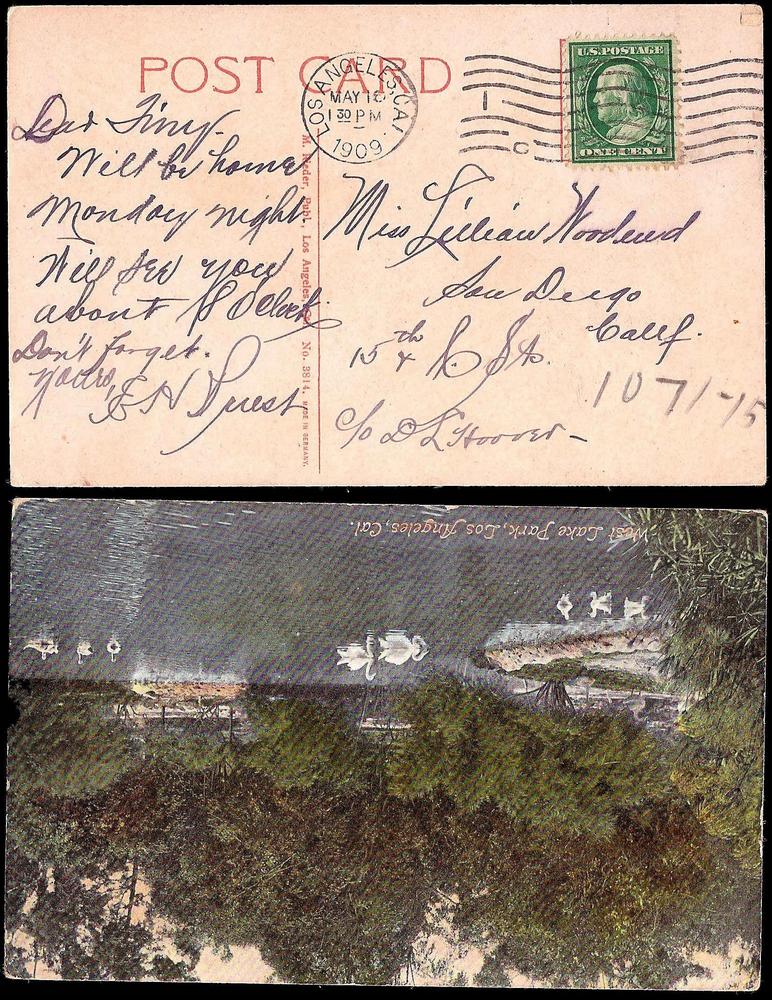 POST CARD
LOS ANGELES, CAL
MAY 16
1 30 PM
1909
1
C
U.S. POSTAGE
ONE CENT
Dear Tiny.
Will be home
Monday night
Will see you
about 8 Oclock.
Don't forget.
Yours,
E H Guest
M. Rieder, Publ., Los Angeles, Cal. No. 3814. MADE IN GERMANY.
Miss Lillian Woodend
San Diego
Calif.
15th & K Sts.
c/o D L Hoover -
1071-15
West Lake Park, Los Angeles, Cal.